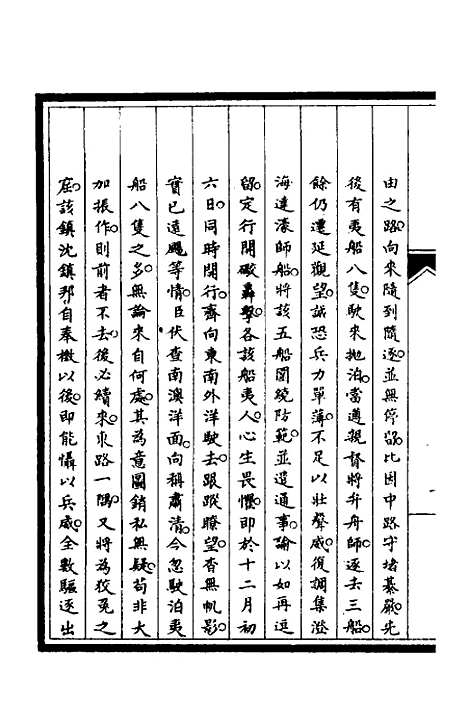 由之路。向來隨到隨逐。並無停留。比因中路守堵綦嚴。先
後有夷船八隻。駛來拋泊。當遵親督將弁舟師。逐去三船。
餘仍遷延觀望。誠恐兵力單薄。不足以壯聲威。復調集澄
海達濠師船。將該五船圍繞防範。並遣通事。諭以如再逗
留。定行開礮轟擊。各該船夷人。心生畏懼。即於十二月初
六日。同時開行。齊向東南外洋駛去。跟蹤瞭望。杳無帆影。
實已遠颺等情。臣伏查南澳洋面。向稱肅清。今忽駛泊夷
船八隻之多。無論來自何處。其為意圖銷私無疑。苟非大
加振作。則前者不去。後必續來。東路一隅。又將為狡兔之
窟。該鎮沈鎮邦。自奉檄以後。即能懾以兵威。全數驅逐出